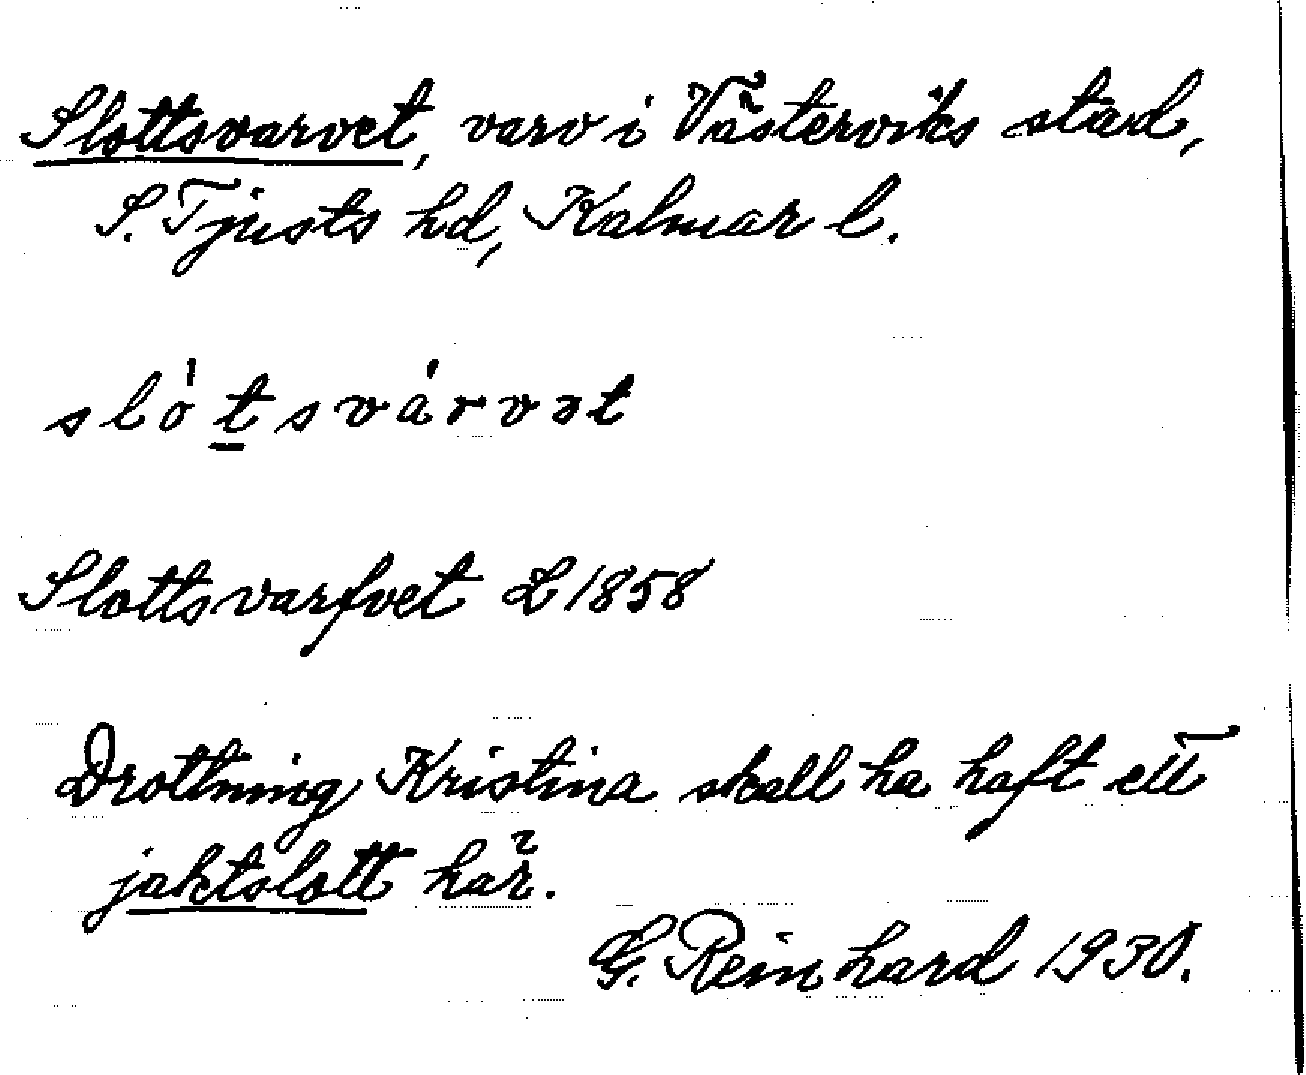 Slottsvarvet, varv i Västerviks stad,
S. Tjusts hd, Kalmar l.
slòtsvárvət
Slottsvarfvet L 1858
Drottning Kristina skall ha haft ett
jaktslott här.
G. Reinhard 1930.